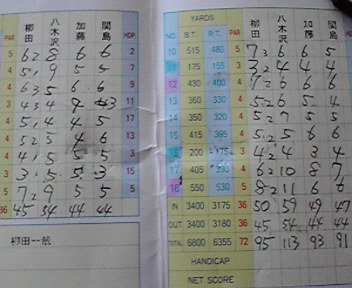 PAR 柳田 八木沢 加藤 関島 HDP
5 62 8 6 6 2
5 9 5 5 7
4 63 5 6 6 9
4 43 4 43 11
5 4 4 5 17
52 5 4 6 13
4 5 5 5 3
3 5 5 3 15
5 72 9 5 5 5
36 45 54 44 44
柳田一
YARDS
NO. B.T. R.T. PAR 柳田 八木沢 加藤 関島
10 515 480 5 73 6 6 5
11 175 155 3 32 4 4 4
12 430 400 4 72 6 6 6
13 360 330 4 52 6 5 4
14 350 320 4 52 7 5 5
15 415 395 4 52 5 6 6
16 200 175 3 42 4 3 4
17 405 4 62 10 8 7
18 550 530 5 82 11 6 6
IN 3400 3175 36 50 59 49 47
OUT 3400 3180 36 45 54 44 44
TOTAL 6800 6355 72 95 113 93 91
HANDICAP
NET SCORE